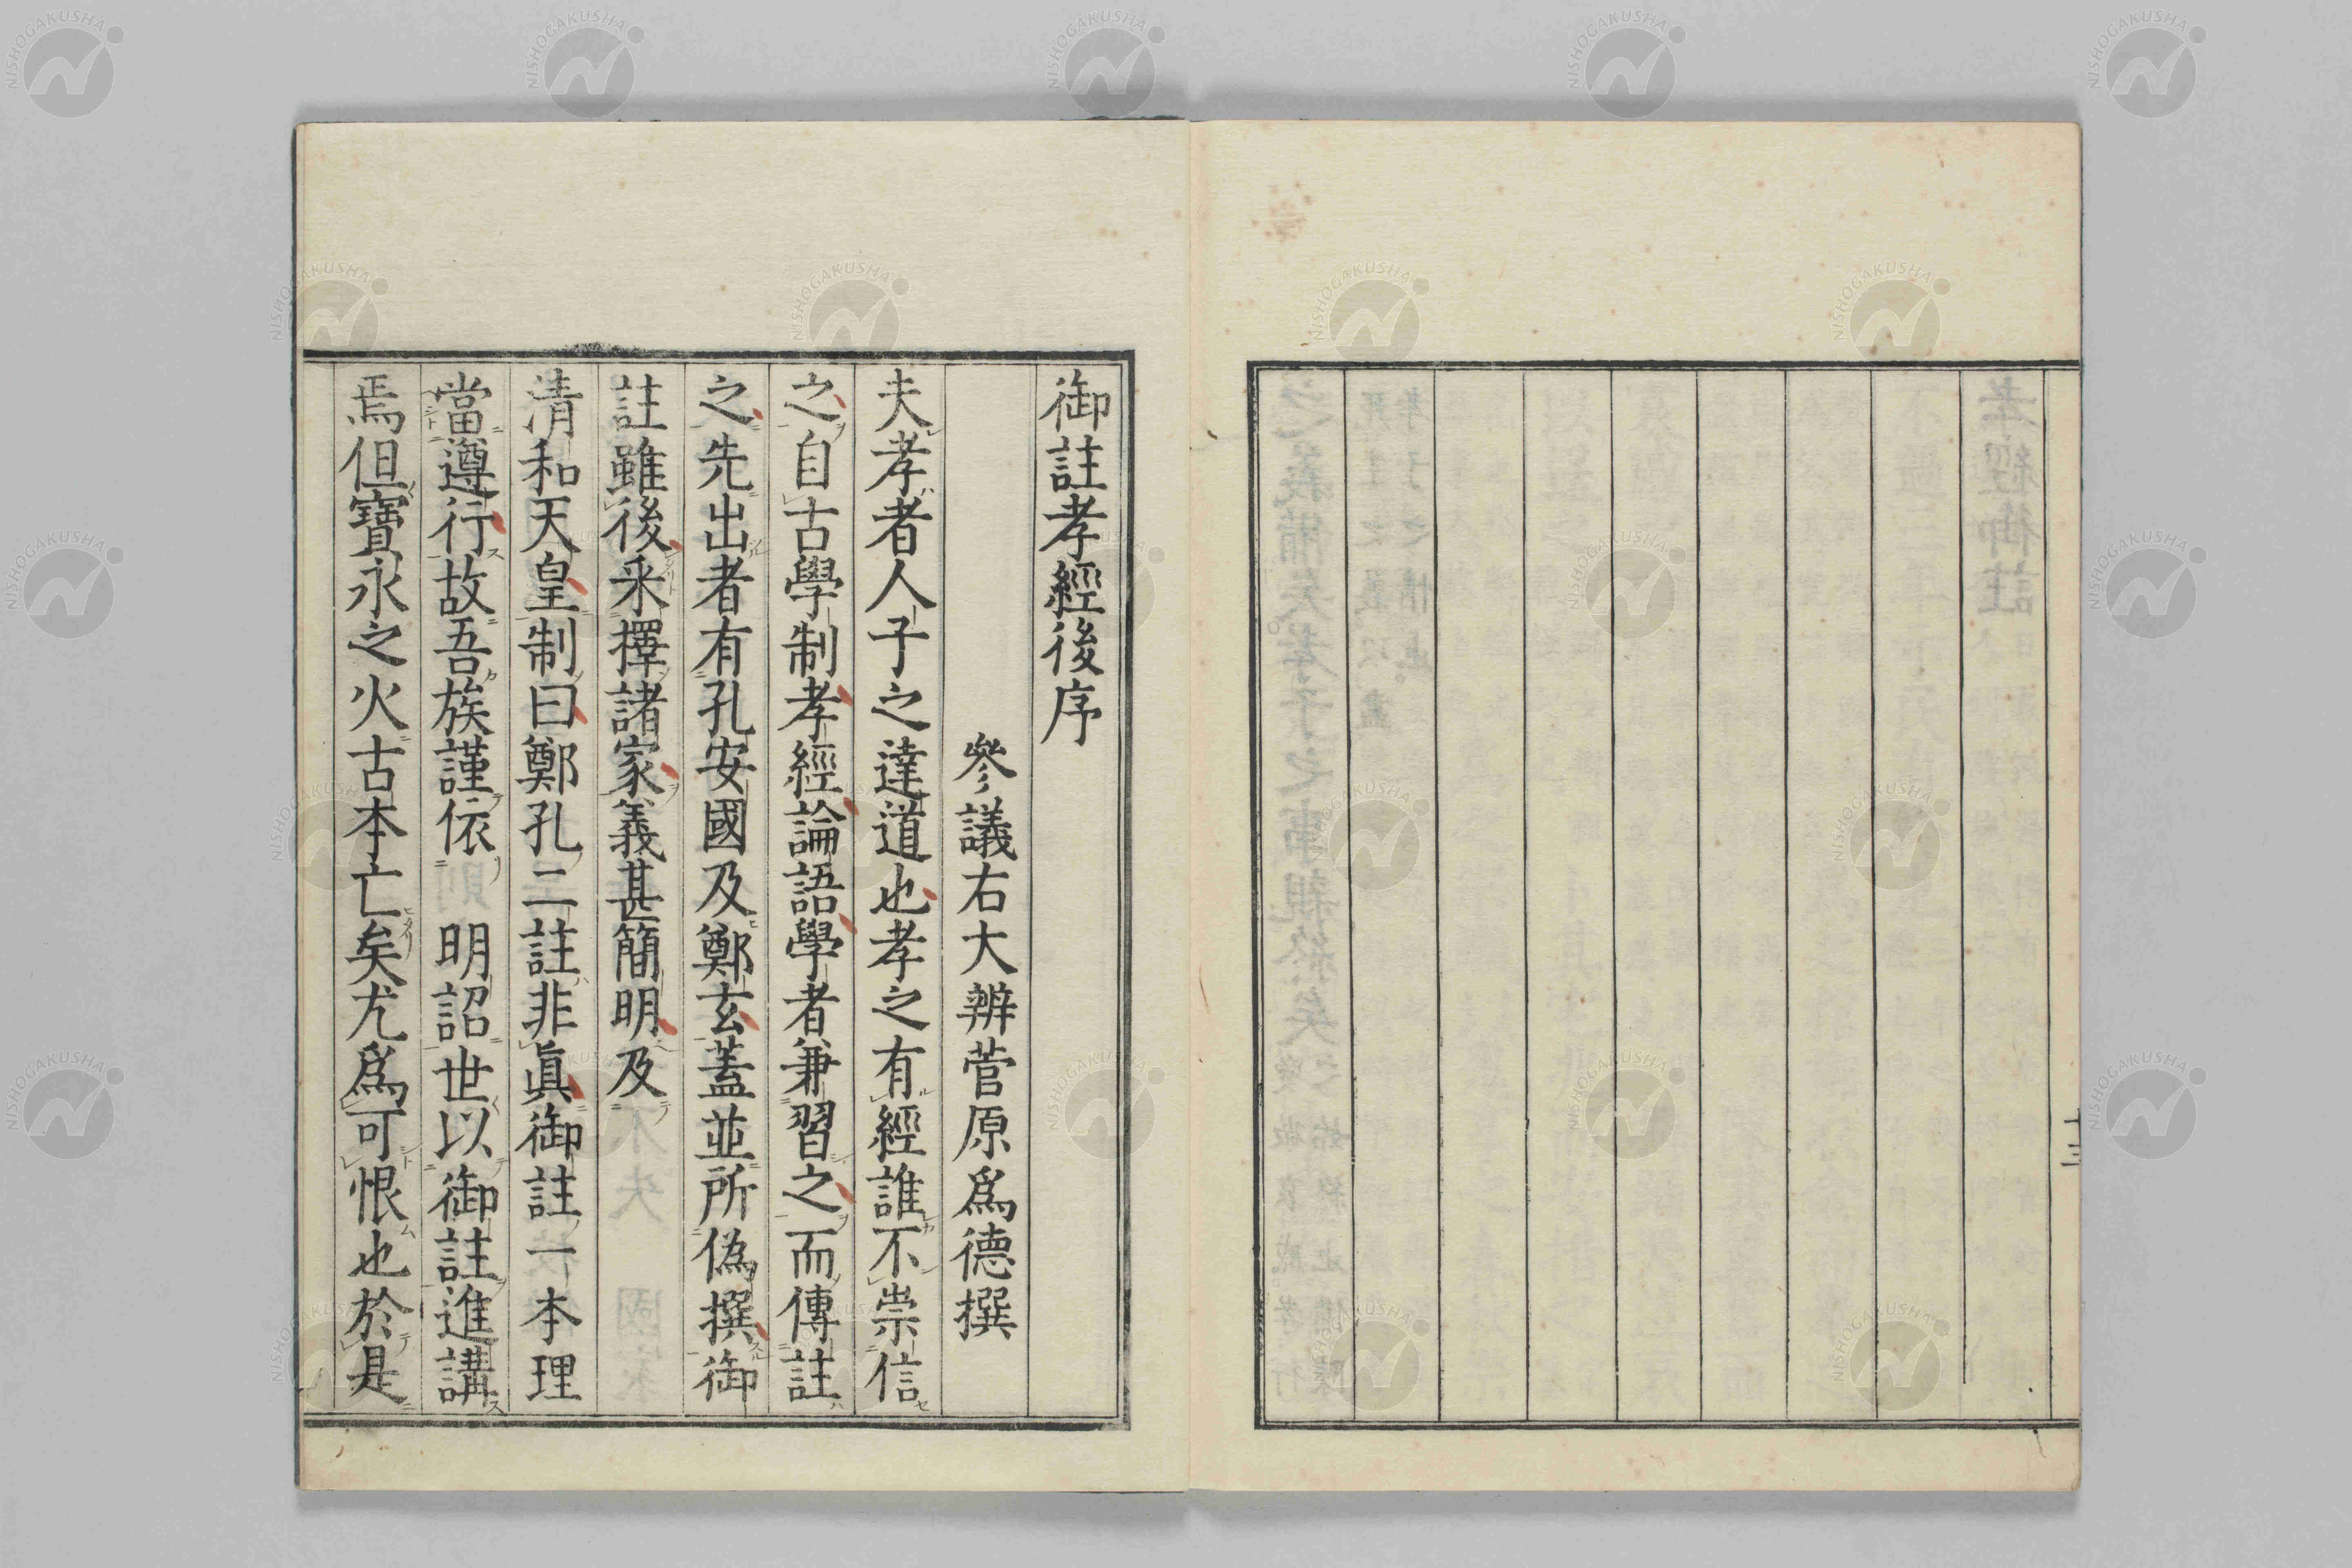 十三
御註孝經後序
參議右大辨菅原爲德撰
夫孝者人子之達道也孝之有經誰不崇信
之自古學制孝經論語學者兼習之而傳註
之先出者有孔安國及鄭玄蓋並所偽撰御
註雖後来擇諸家義甚簡明及
清和天皇制曰鄭孔二註非眞御註一本理
當遵行故吾族謹依　明詔世以御註進講
焉但寶永之火古本亡矣尤爲可恨也於是
NISHOGAKUSHA